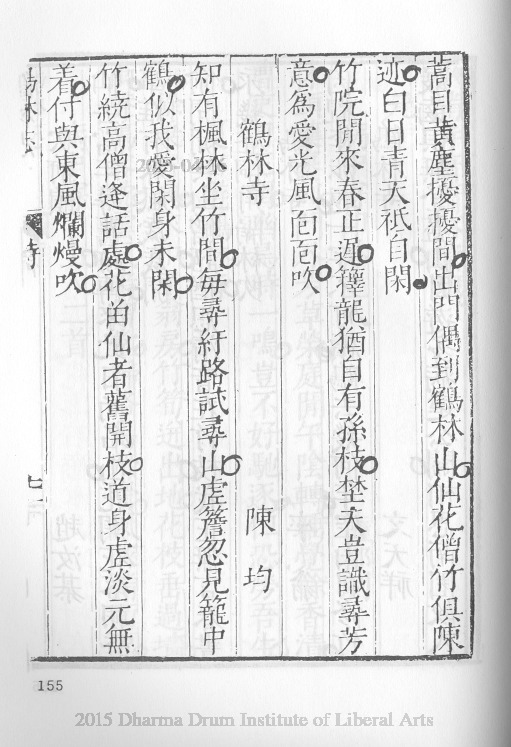 蒿目黃塵擾擾間出門偶到鶴林山仙花僧竹俱陳
迹白日青天祗自閑
竹院閒來春正遲籜龍猶自有孫枝埜夫豈識尋芳
意為愛光風面面吹
鶴林寺 陳均
知有楓林坐竹間每尋紆路試尋山虛簷忽見籠中
鶴似我愛閑身未閑
竹繞高僧逢話處花由仙者舊開枝道身虛淡元無
着付與東風爛熳吹
林志
詩
155
2015 Dharma Drum Institute of Liberal Arts